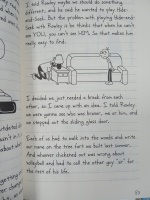 I told Rowley maybe we should do something
different, and he said he wanted to play Hide-
and-Seek. But the problem with playing Hide-and-
Seek with Rowley is he thinks that when he can't
see YOU, you can't see HIM. So that makes him
really easy to find.
I decided we just needed a break from each
other, so I came up with an idea. I told Rowley
we were gonna see who was braver, me or him, and
we stepped out the sliding glass door.
Each of us had to walk into the woods and write
our name on the tree fort we built last summer.
And whoever chickened out was wrong about
volleyball and had to call the other guy "sir" for
the rest of his life.
53